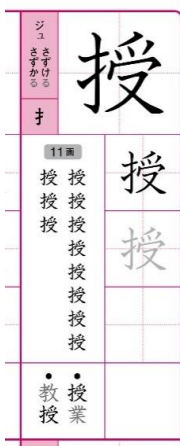 授
ジュ
さずける
さずかる
扌
授
授
11画
授授授授授授授授
授授授
・授業
・教授